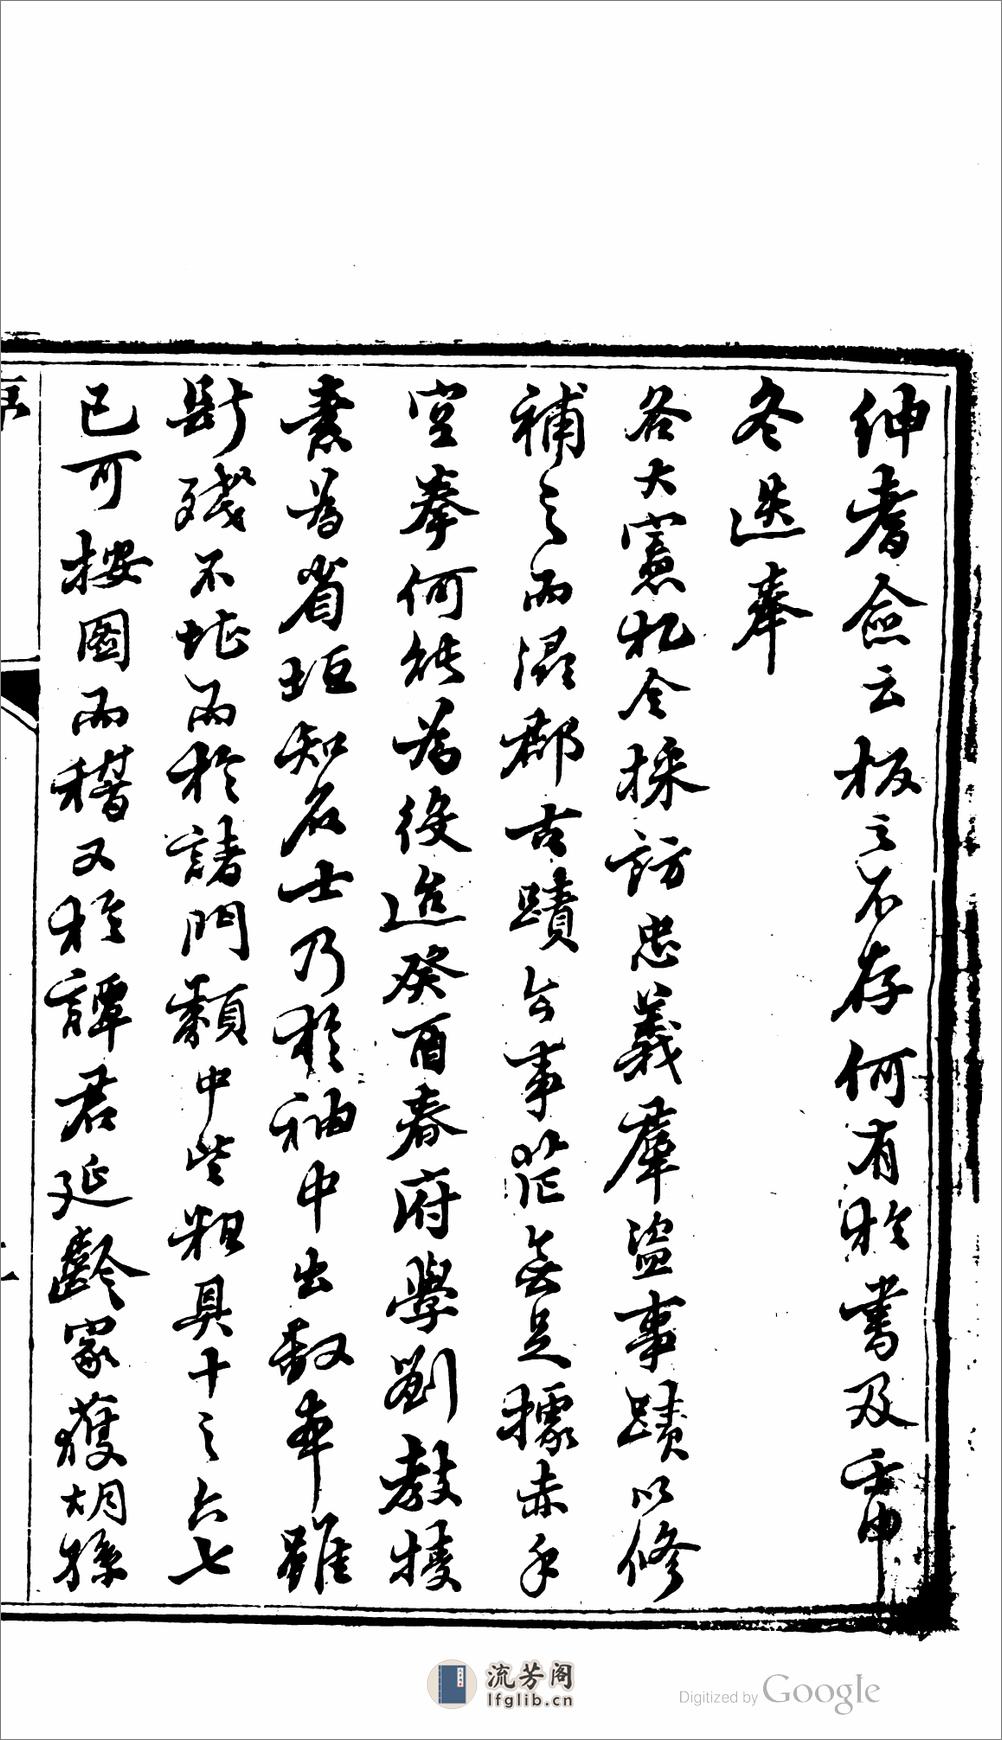 紳耆僉云板之不存何有於書及壬申
冬迭奉
各大憲札令採訪忠義羣盜事蹟以修
補之而潯郡古蹟公事茫無足據赤手
空拳何能為役迨癸酉春府學劉教授
素為省垣知名士乃於袖中出數本雖
斷殘不堪而於諸門類中些粗具十之六七
已可按圖而稽又於譚君延齡家獲胡孫
序
流芳阁
lfglib.cn
Digitized by Google